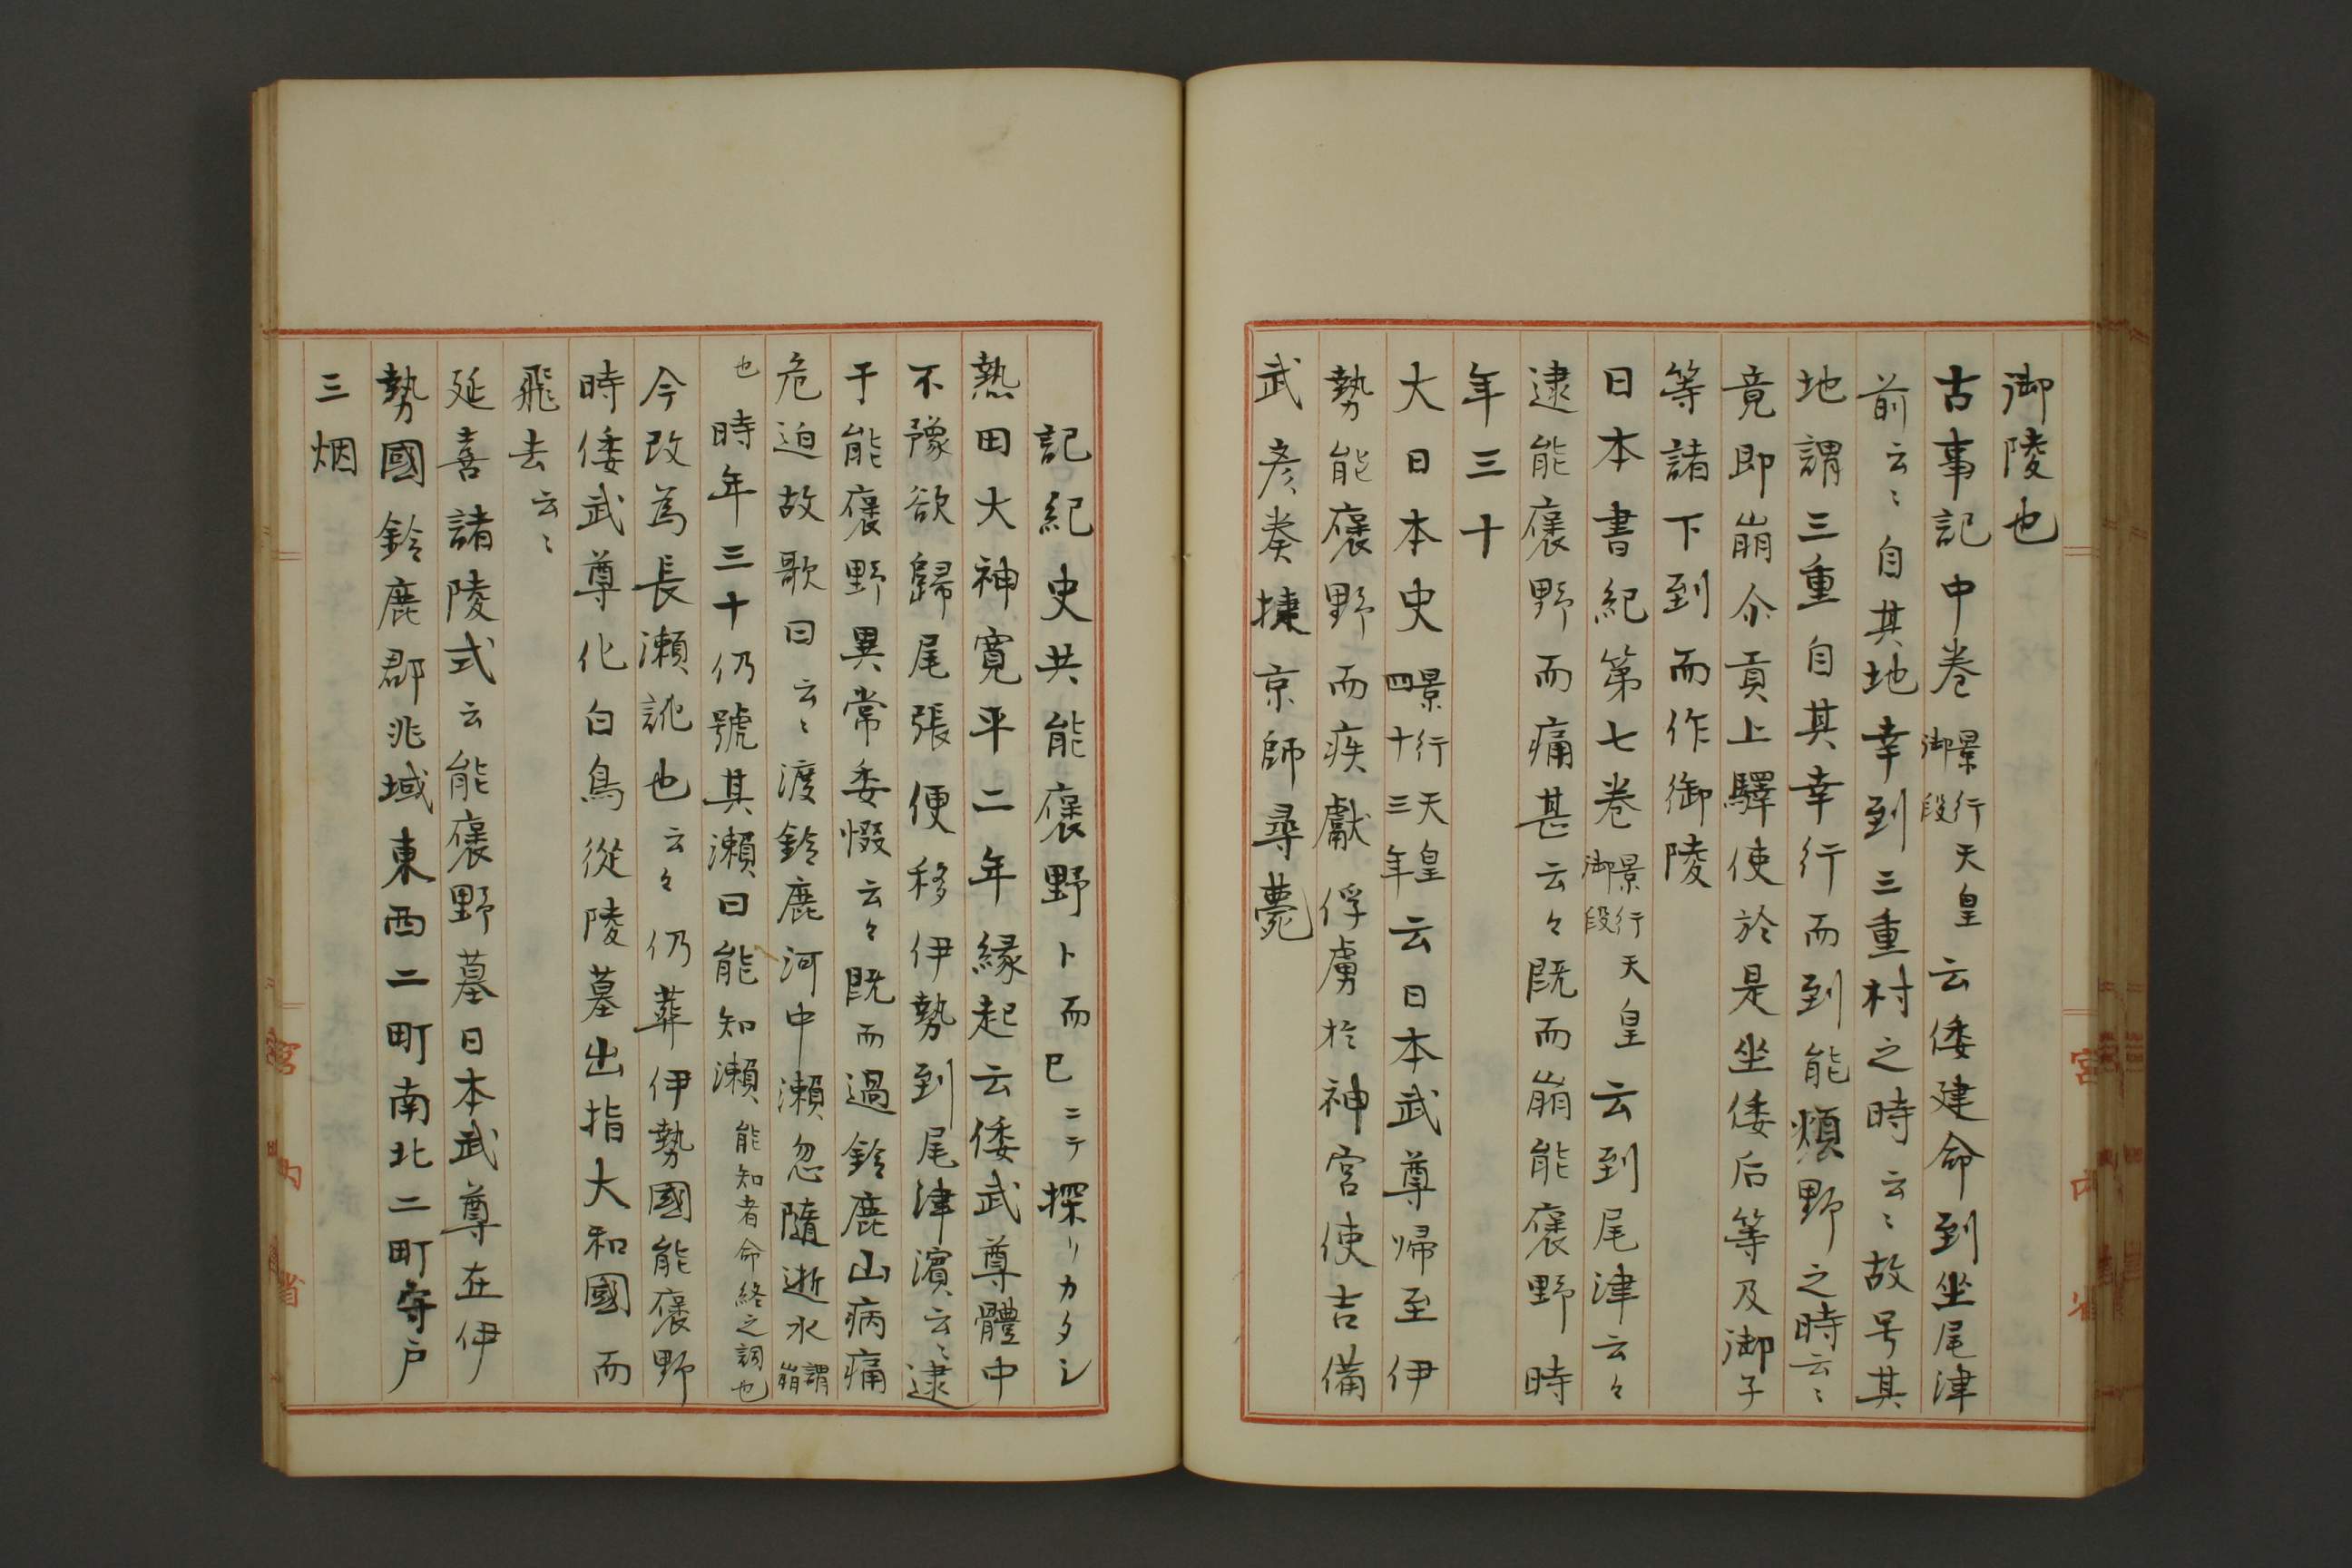 御陵也
古事記中卷景行天皇御段云倭建命到坐尾津
前云〻自其地幸到三重村之時云〻故号其
地謂三重自其幸行而到能煩野之時云〻
竟即崩尒貢上驛使於是坐倭后等及御子
等諸下到而作御陵
日本書紀第七卷景行天皇御段云到尾津云々
逮能褒野而痛甚云々既而崩能褒野時
年三十
大日本史景行天皇四十三年云日本武尊帰至伊
勢能褒野而疾獻俘虜於神宮使吉備
武彦奏捷京師尋薨
記紀史共能褒野ト而已ニテ探リカタシ
熱田大神寛平二年縁起云倭武尊體中
不豫欲歸尾張便移伊勢到尾津濱云〻逮
于能褒野異常委惙云々既而過鈴鹿山病痛
危迫故歌曰云〻渡鈴鹿河中瀬忽隨逝水謂崩
也時年三十仍號其瀬曰能知瀬能知者命終之詞也
今改為長瀬訛也云々仍葬伊勢國能褒野
時倭武尊化白鳥從陵墓出指大和國而
飛去云〻
延喜諸陵式云能褒野墓日本武尊在伊
勢國鈴鹿郡兆域東西二町南北二町守戸
三烟
宮内省
宮内省